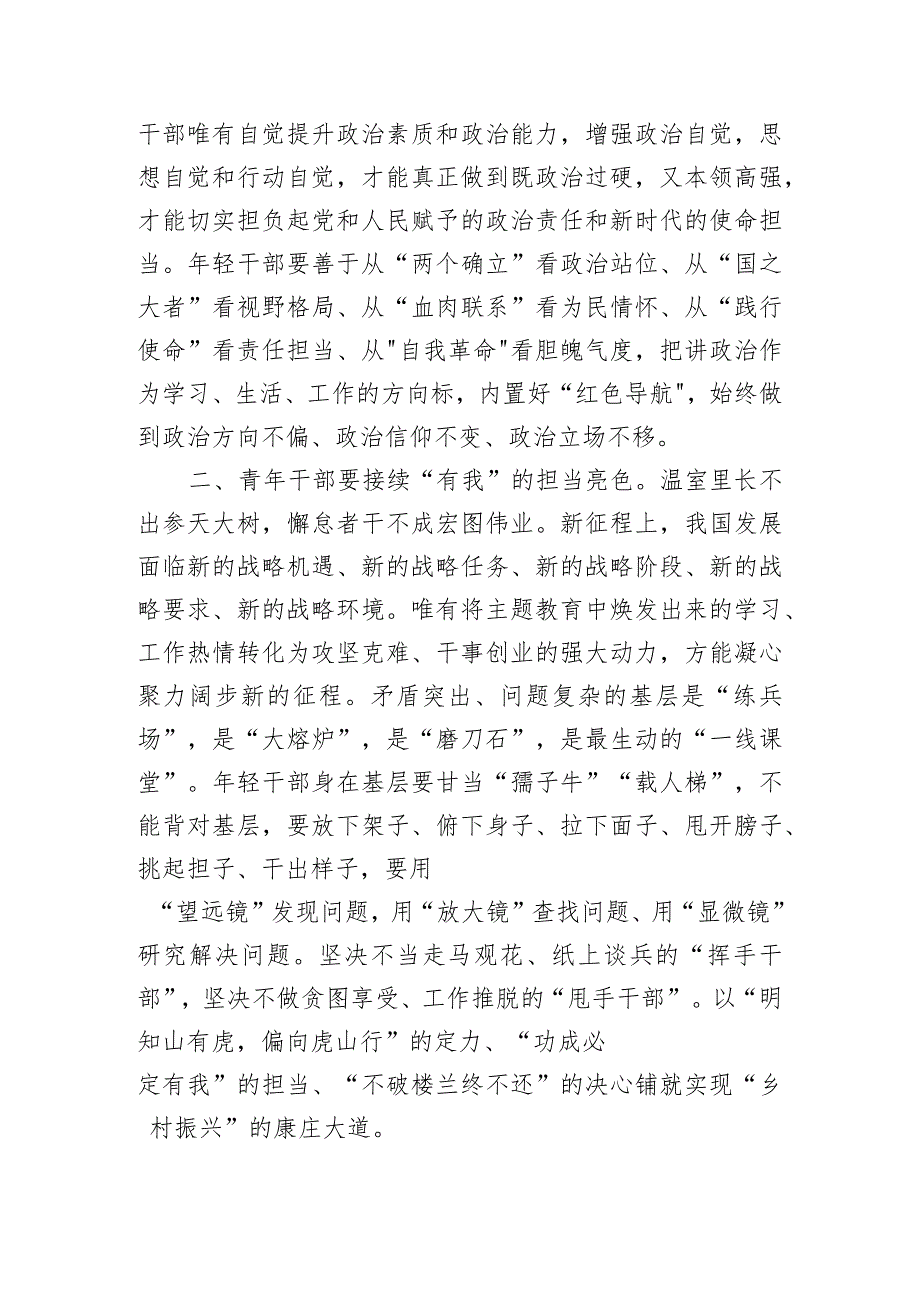 干部唯有自觉提升政治素质和政治能力，增强政治自觉，思
想自觉和行动自觉，才能真正做到既政治过硬，又本领高强，
才能切实担负起党和人民赋予的政治责任和新时代的使命担
当。年轻干部要善于从“两个确立”看政治站位、从“国之
大者”看视野格局、从“血肉联系”看为民情怀、从“践行
使命”看责任担当、从"自我革命"看胆魄气度，把讲政治作
为学习、生活、工作的方向标，内置好“红色导航"，始终做
到政治方向不偏、政治信仰不变、政治立场不移。
二、青年干部要接续“有我”的担当亮色。温室里长不
出参天大树，懈怠者干不成宏图伟业。新征程上，我国发展
面临新的战略机遇、新的战略任务、新的战略阶段、新的战
略要求、新的战略环境。唯有将主题教育中焕发出来的学习、
工作热情转化为攻坚克难、干事创业的强大动力，方能凝心
聚力阔步新的征程。矛盾突出、问题复杂的基层是“练兵
场”，是“大熔炉”，是“磨刀石”，是最生动的“一线课
堂”。年轻干部身在基层要甘当“孺子牛”“载人梯”，不
能背对基层，要放下架子、俯下身子、拉下面子、甩开膀子、
挑起担子、干出样子，要用
“望远镜”发现问题，用“放大镜”查找问题、用“显微镜”
研究解决问题。坚决不当走马观花、纸上谈兵的“挥手干
部”，坚决不做贪图享受、工作推脱的“甩手干部”。以“明
知山有虎，偏向虎山行”的定力、“功成必
定有我”的担当、“不破楼兰终不还”的决心铺就实现“乡
村振兴”的康庄大道。